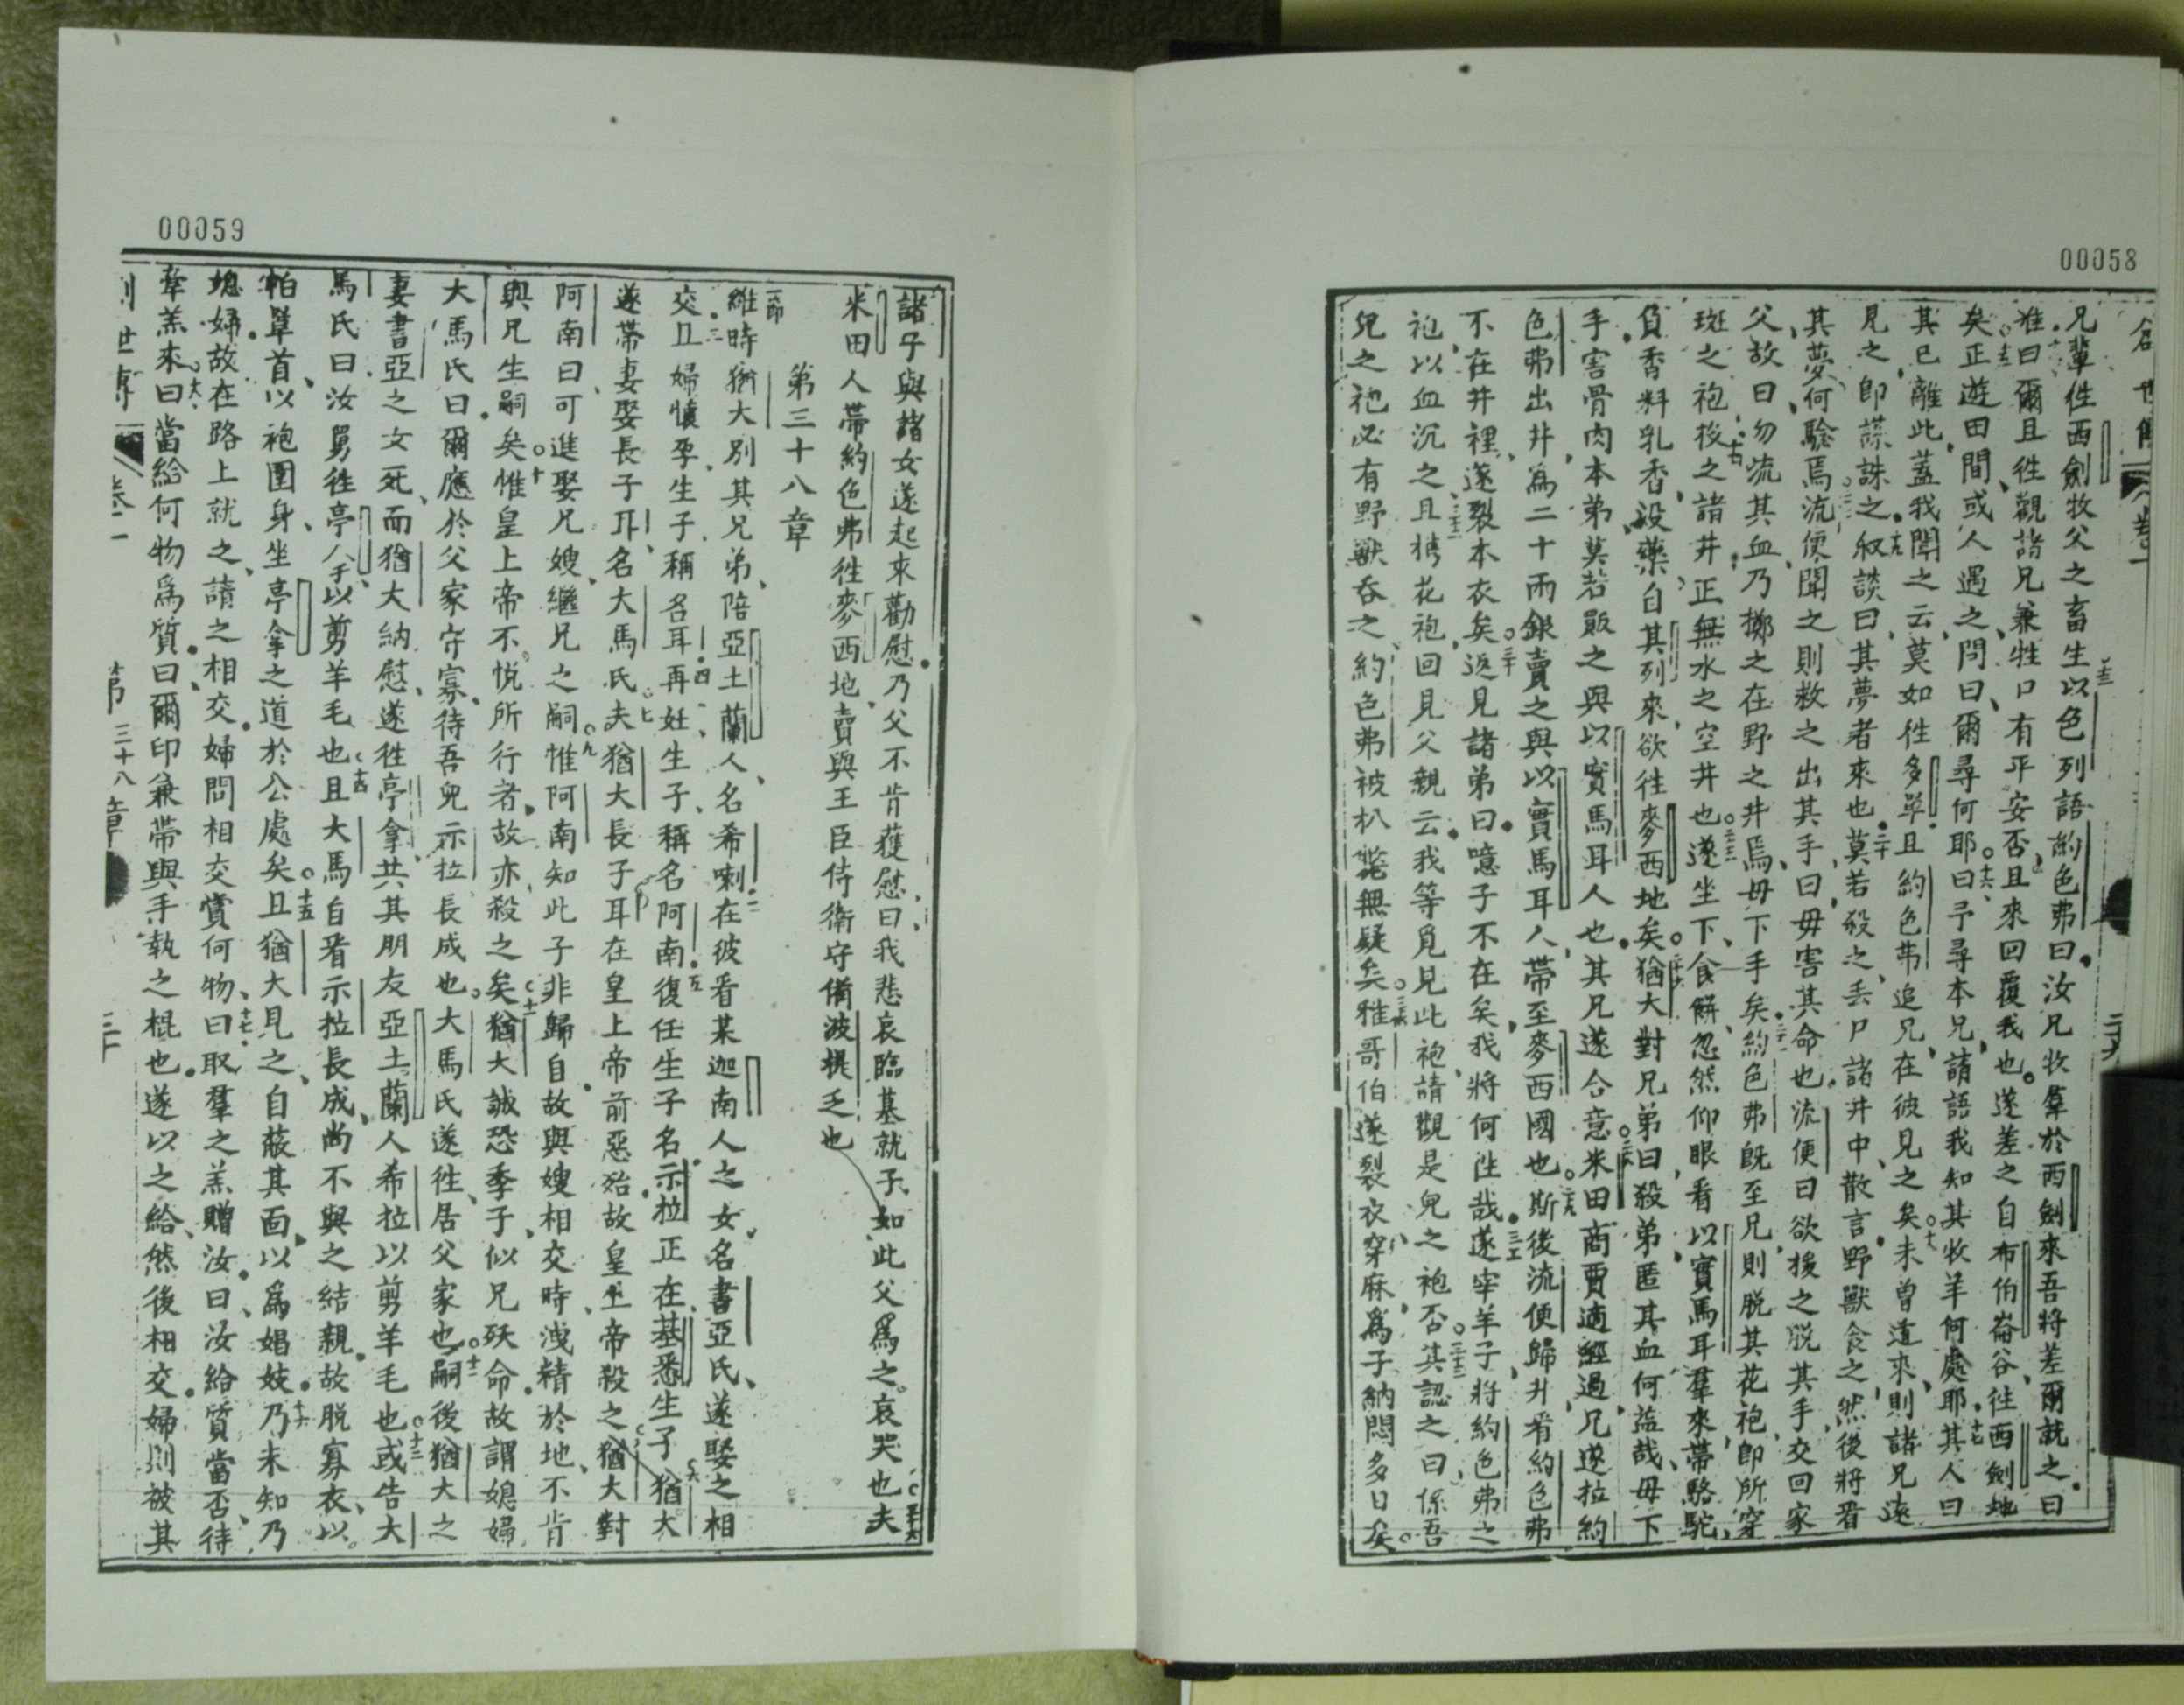 00058
兄輩徃西劍牧父之畜生以色列語約色弗曰汝兄牧羣於西劍來吾將差爾就之曰
准曰爾且徃觀諸兄兼牲口有平安否且來回覆我也遂差之自布伯崙谷徃西劍地
矣正遊田間或人遇之問曰爾尋何耶曰予尋本兄請語我知其牧羊何處耶其人曰
其已離此蓋我聞之云莫如徃多單且約色弗追兄在彼見之矣未曾遠來則諸兄遠
見之即謀誅之叙談曰其夢者來也莫若殺之丟尸諸井中散言野獸食之然後將看
其夢何驗焉流便聞之則救之出其手曰毋害其命也流便曰欲援之脱其手交回家
父故曰勿流其血乃擲之在野之井焉毋下手矣約色弗既至兄則脱其花袍即所穿
斑之袍投之諸井正無水之空井也遂坐下食餅忽然仰眼看以實馬耳羣來帶駱駝
負香料乳香沒藥自其列來欲徃麥西地矣猶大對兄弟曰殺弟匿其血何益哉毋下
手害骨肉本弟莫若販之與以實馬耳人也其兄遂合意米田商賈適經過兄遂拉約
色弗出井為二十兩銀賣之與以實馬耳人帶至麥西國也斯後流便歸井看約色弗
不在井裡遂裂本衣矣返見諸弟曰噫子不在矣我將何徃哉遂宰羊子將約色弗之
袍以血沉之且携花袍回見父親云我等覓見此袍請觀是兒之袍否其認之曰係吾
兒之袍必有野獸吞之約色弗被扒無疑矣雅哥伯遂裂衣穿麻為子納悶多日矣
00059
諸子與諸女遂起來勸慰乃父不肯獲慰曰我悲哀臨墓就子如此父為之哀哭也夫
米田人帶約色弗徃麥西地賣與王臣侍衛守備波提乏也
第三十八章
維時猶大別其兄弟陪亞土蘭人名希喇在彼看某迦南人之女名書亞氏遂娶之相
交且婦懷孕生子稱名耳再妊生子稱名阿南復任生子名示拉正在基悉生子猶大
遂帶妻娶長子耳名大馬氏夫猶大長子耳在皇上帝前惡殆故皇上帝殺之猶大對
阿南曰可進娶兄嫂繼兄之嗣惟阿南知此子非歸自故與嫂相交時洩精於地不肯
與兄生嗣矣惟皇上帝不悅所行者故亦殺之矣猶大誠恐季子似兄殀命故謂媳婦
大馬氏曰爾應於父家守寡待吾兒示拉長成也大馬氏遂徃居父家也嗣後猶大之
妻書亞之女死而猶大納慰遂徃亭拿共其朋友亞土蘭人希拉以剪羊毛也或告大
馬氏曰汝舅徃亭拿以剪羊毛也且大馬自看示拉長成尚不與之結親故脱寡衣以
帕羃首以袍圍身坐亭拿之道於公處矣且猶大見之自蔽其面以為娼妓乃未知乃
媳婦故在路上就之請之相交婦問相交賞何物曰取羣之羔贈汝曰汝給質當否待
牽羔來曰當給何物為質曰爾印兼帶與手執之棍也遂以之給然後相交婦則被其
第三十八章
三十